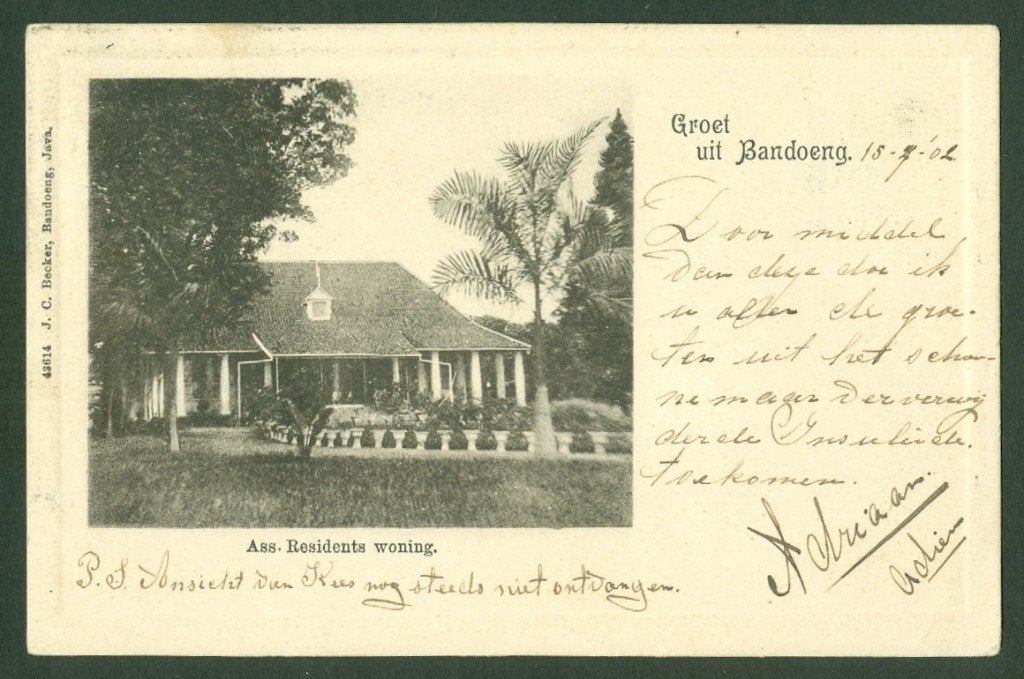 42614 J. C. Becker, Bandoeng, Java.
Groet
uit Bandoeng. 15-7-'02
Door middel
van deze doe ik
u allen de groe-
ten uit het schoo-
ne maar ver verwij
derde Insulinde.
toekomen.
Adriaan.
Adieu
Ass. Residents woning.
P.S. Ansicht van Kees nog steeds niet ontvangen.